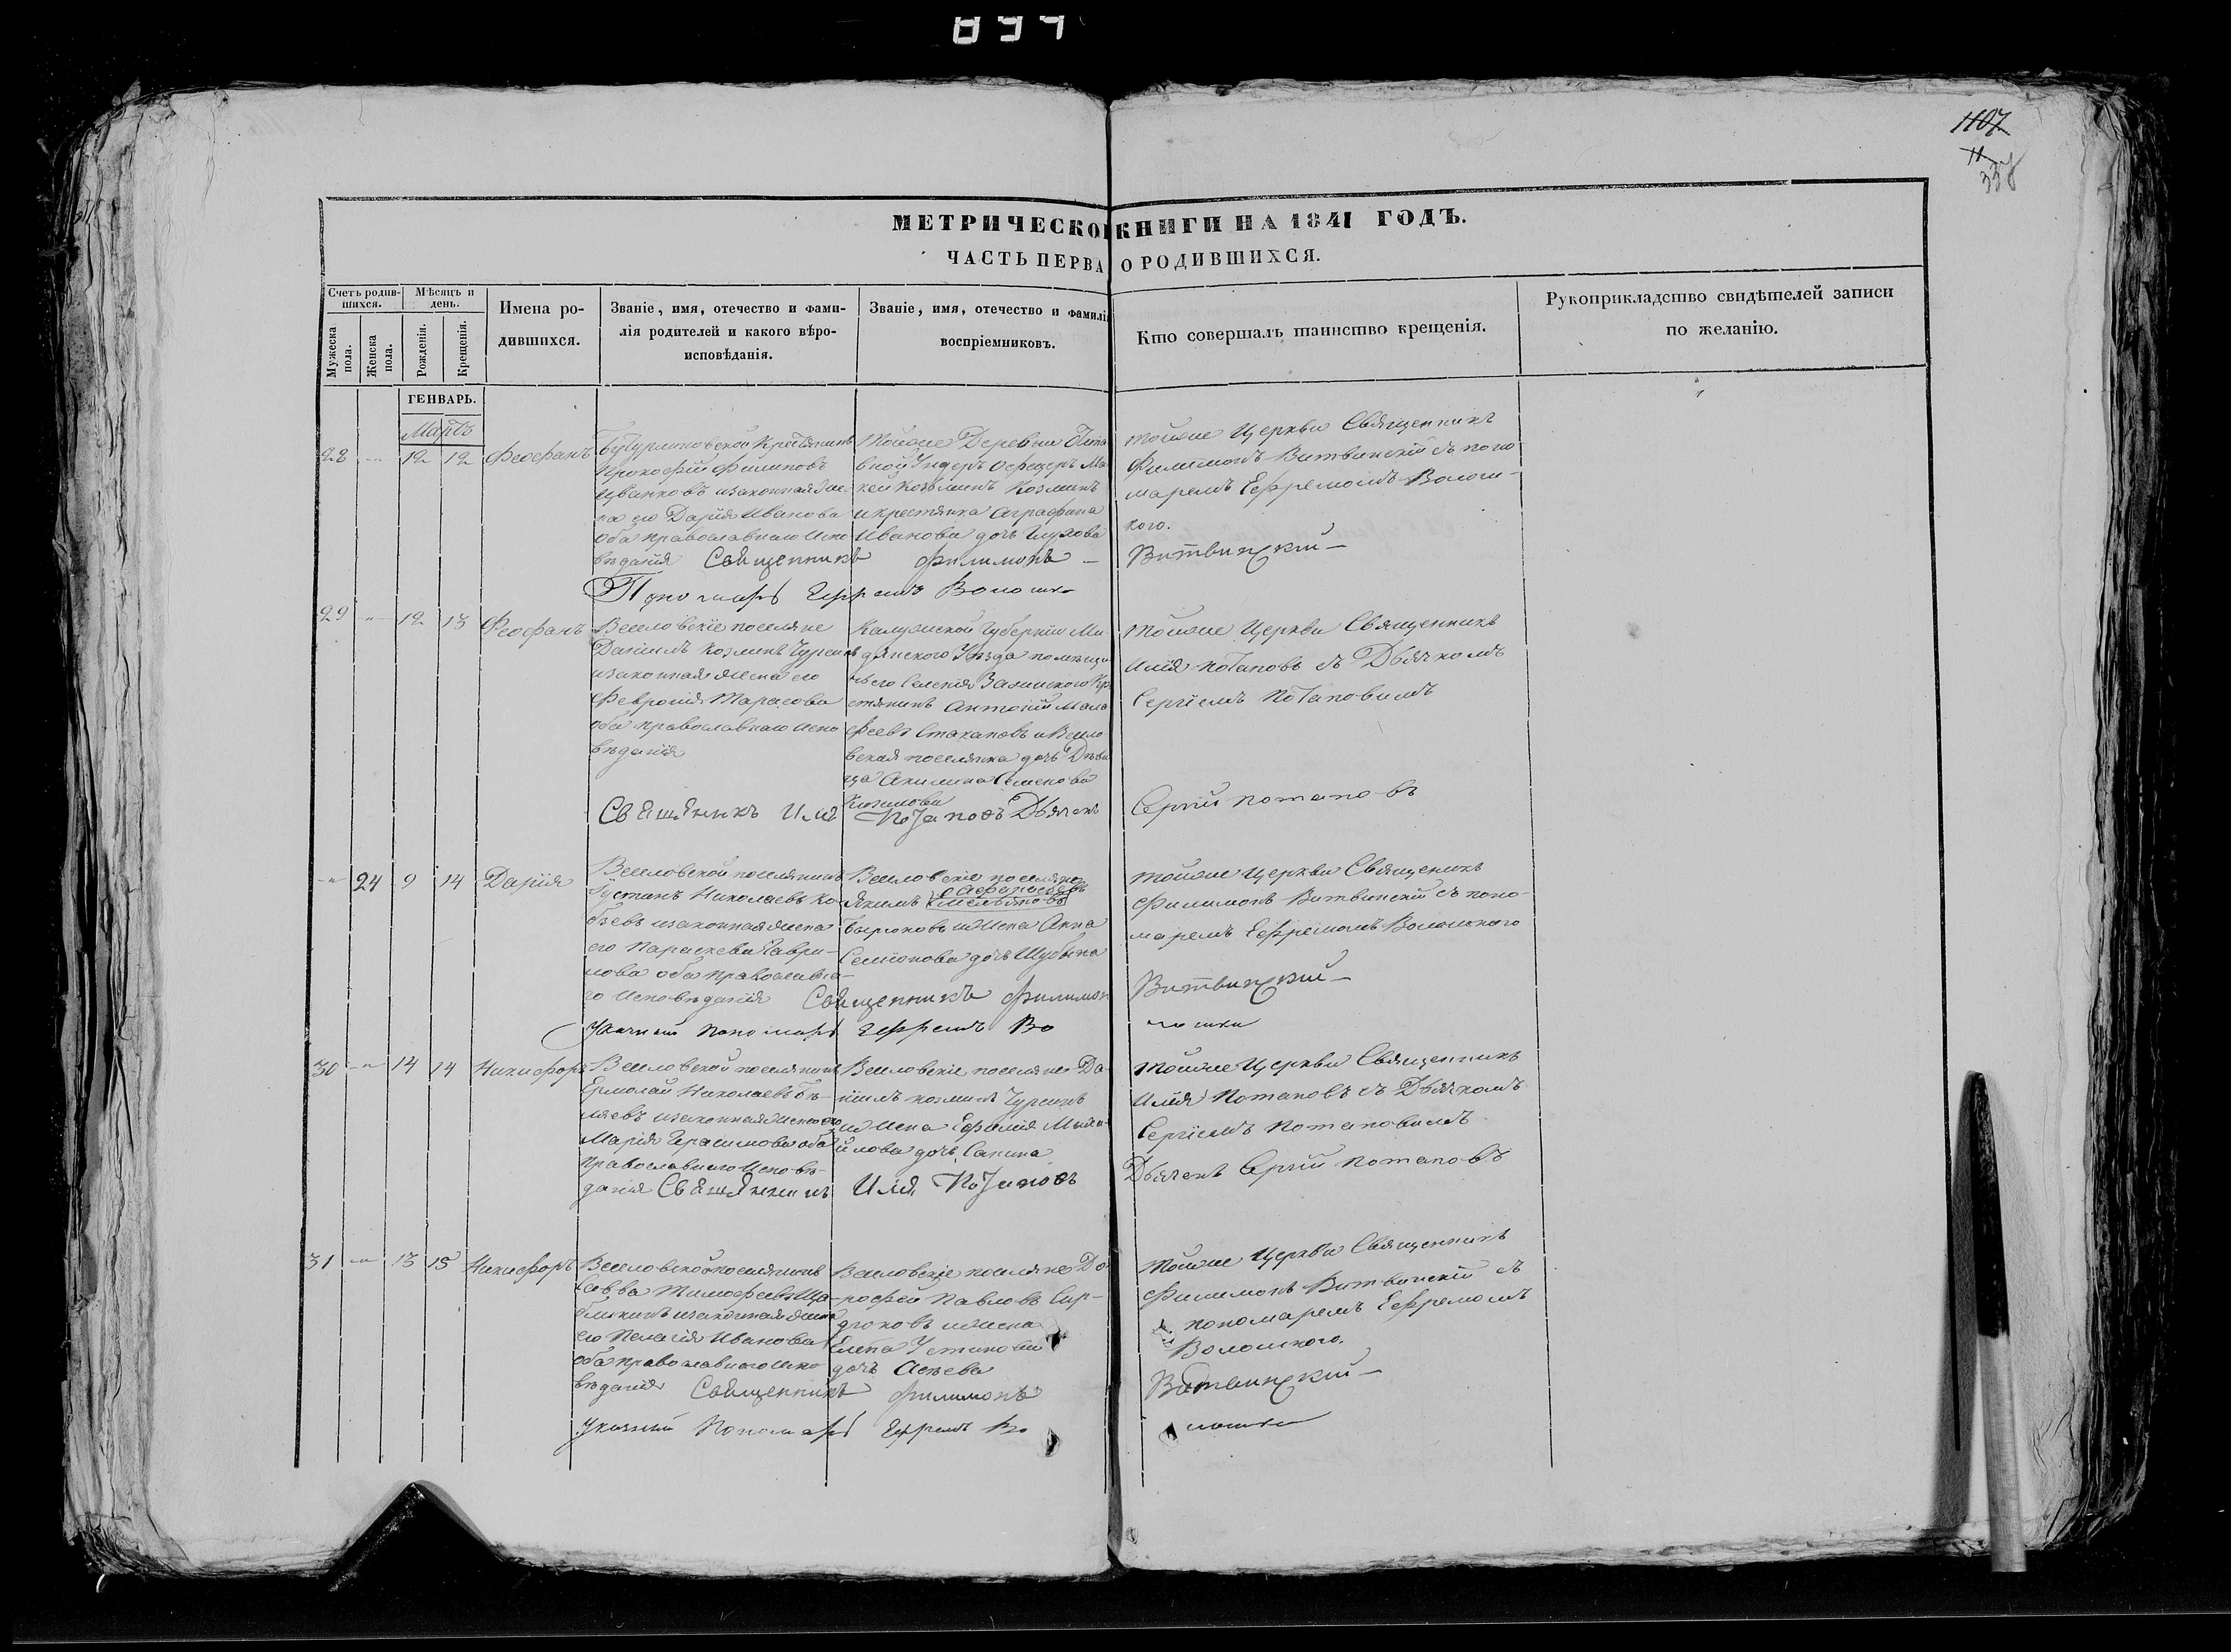 894
1107
11
338
МЕТРИЧЕСКОЙ КНИГИ НА 1841 ГОДЪ.
ЧАСТЬ ПЕРВА О РОДИВШИХСЯ.
Счетъ родив-
шихся.
Мѣсяцъ и
день.
Мужеска
пола.
Женска
пола.
Рожденія.
Крещенія.
Имена ро-
дившихся.
Званіе, имя, отечество и фами-
лія родителей и какого вѣро-
исповѣданія.
Званіе, имя, отечество и фамилі
воспріемниковъ.
Кто совершалъ таинство крещенія.
Рукоприкладство свидѣтелей записи
по желанію.
ГЕНВАРЬ.
Мартъ
28 12 12 Феофанъ
Прокофій Филиповъ
Ивановъ изаконная же-
на его Дарія Иванова
оба православнаго испо
вѣданія Священникъ
тойже Деревни
Ундеръ Офицеръ
Козминъ
и крестянка Аграфена
Иванова дочь
Филимонъ
тойже Церкви Священникъ
Филимонъ Витвинскій съ поно
маремъ Ефремомъ
кого.
Витвинскій
Пономарь Ефремъ
29 12 13 Феофанъ
Веселовскіе поселяне
Даніилъ Козминъ Чурсинъ
изаконная жена его
Февронія Тарасова
оба православнаго испо
вѣданія
Священникъ Илія
Калужской Губерніи Ми
дынскаго Уѣзда помѣщи
чьего Селенія
стянинъ Антоній Мала
феевъ Стакановъ и Весело
вская поселянка дочь Дѣви
ца Акилина Семенова
Потаповъ Дьячекъ
тойже Церкви Священникъ
Илія Потаповъ съ Дьячкомъ
Сергіемъ Потаповымъ
Сергій Потаповъ
24 9 14 Дарія
Веселовской поселянинъ
Густинъ Николаевъ Ко-
бзевъ изаконная жена
его Параскева Гаври-
лова оба православна-
го исповѣданія Священникъ
Веселовскіе поселяне
Якимъ
Бырюковъ и жена Анна
Семіонова дочь Шубина
Филимон
тойже Церкви Священикъ
Филимонъ Витвинскій съ поно-
маремъ Ефремомъ Волошкого
Витвинскій
Указный Пономарь Ефремъ Во
лошки
30 14 14 Никифоръ
Веселовской поселянинъ
Ермолай Николаевъ Бѣ-
ляевъ изаконная жена его
Марія Герасимова оба
православнаго исповѣ-
данія Священникъ
Веселовскіе поселяне Да
ніилъ Козминъ Чурсинъ
и жена Ефимія Миха-
йлова дочь Сапина
Илія Потаповъ
тойже Церкви Священникъ
Илія Потаповъ съ Дьячкомъ
Сергіемъ Потаповымъ
Дьячекъ Сергій Потаповъ
31 13 15 Никифоръ
Веселовской поселянинъ
Савва Тимофеевъ Ща-
бликинъ изаконная жена
его Пелагія Иванова
оба православнаго испо
вѣданія Священникъ
Веселовскіе поселяне До
рофей Павловъ Сер-
дюковъ и жена
Елена Устинова
дочь Асѣева
Филимонъ
тойже Церкви Священникъ
Филимонъ Витвинскій съ
пономаремъ Ефремомъ
Волошкого.
Витвинскій
Указный Пономарь Ефремъ Во
лошки